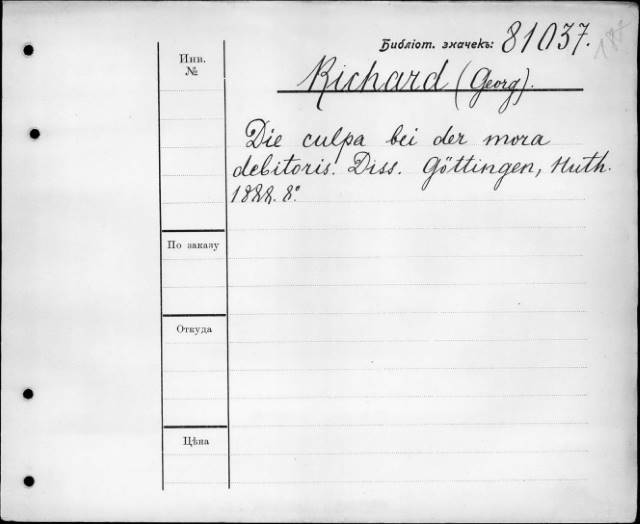 Библіот. значекъ: 81037.
Инв.
№
Richard (Georg).
Die culpa bei der mora
debitoris. Diss. Göttingen, Huth.
1888. 8°.
По заказу
Откуда
Цѣна